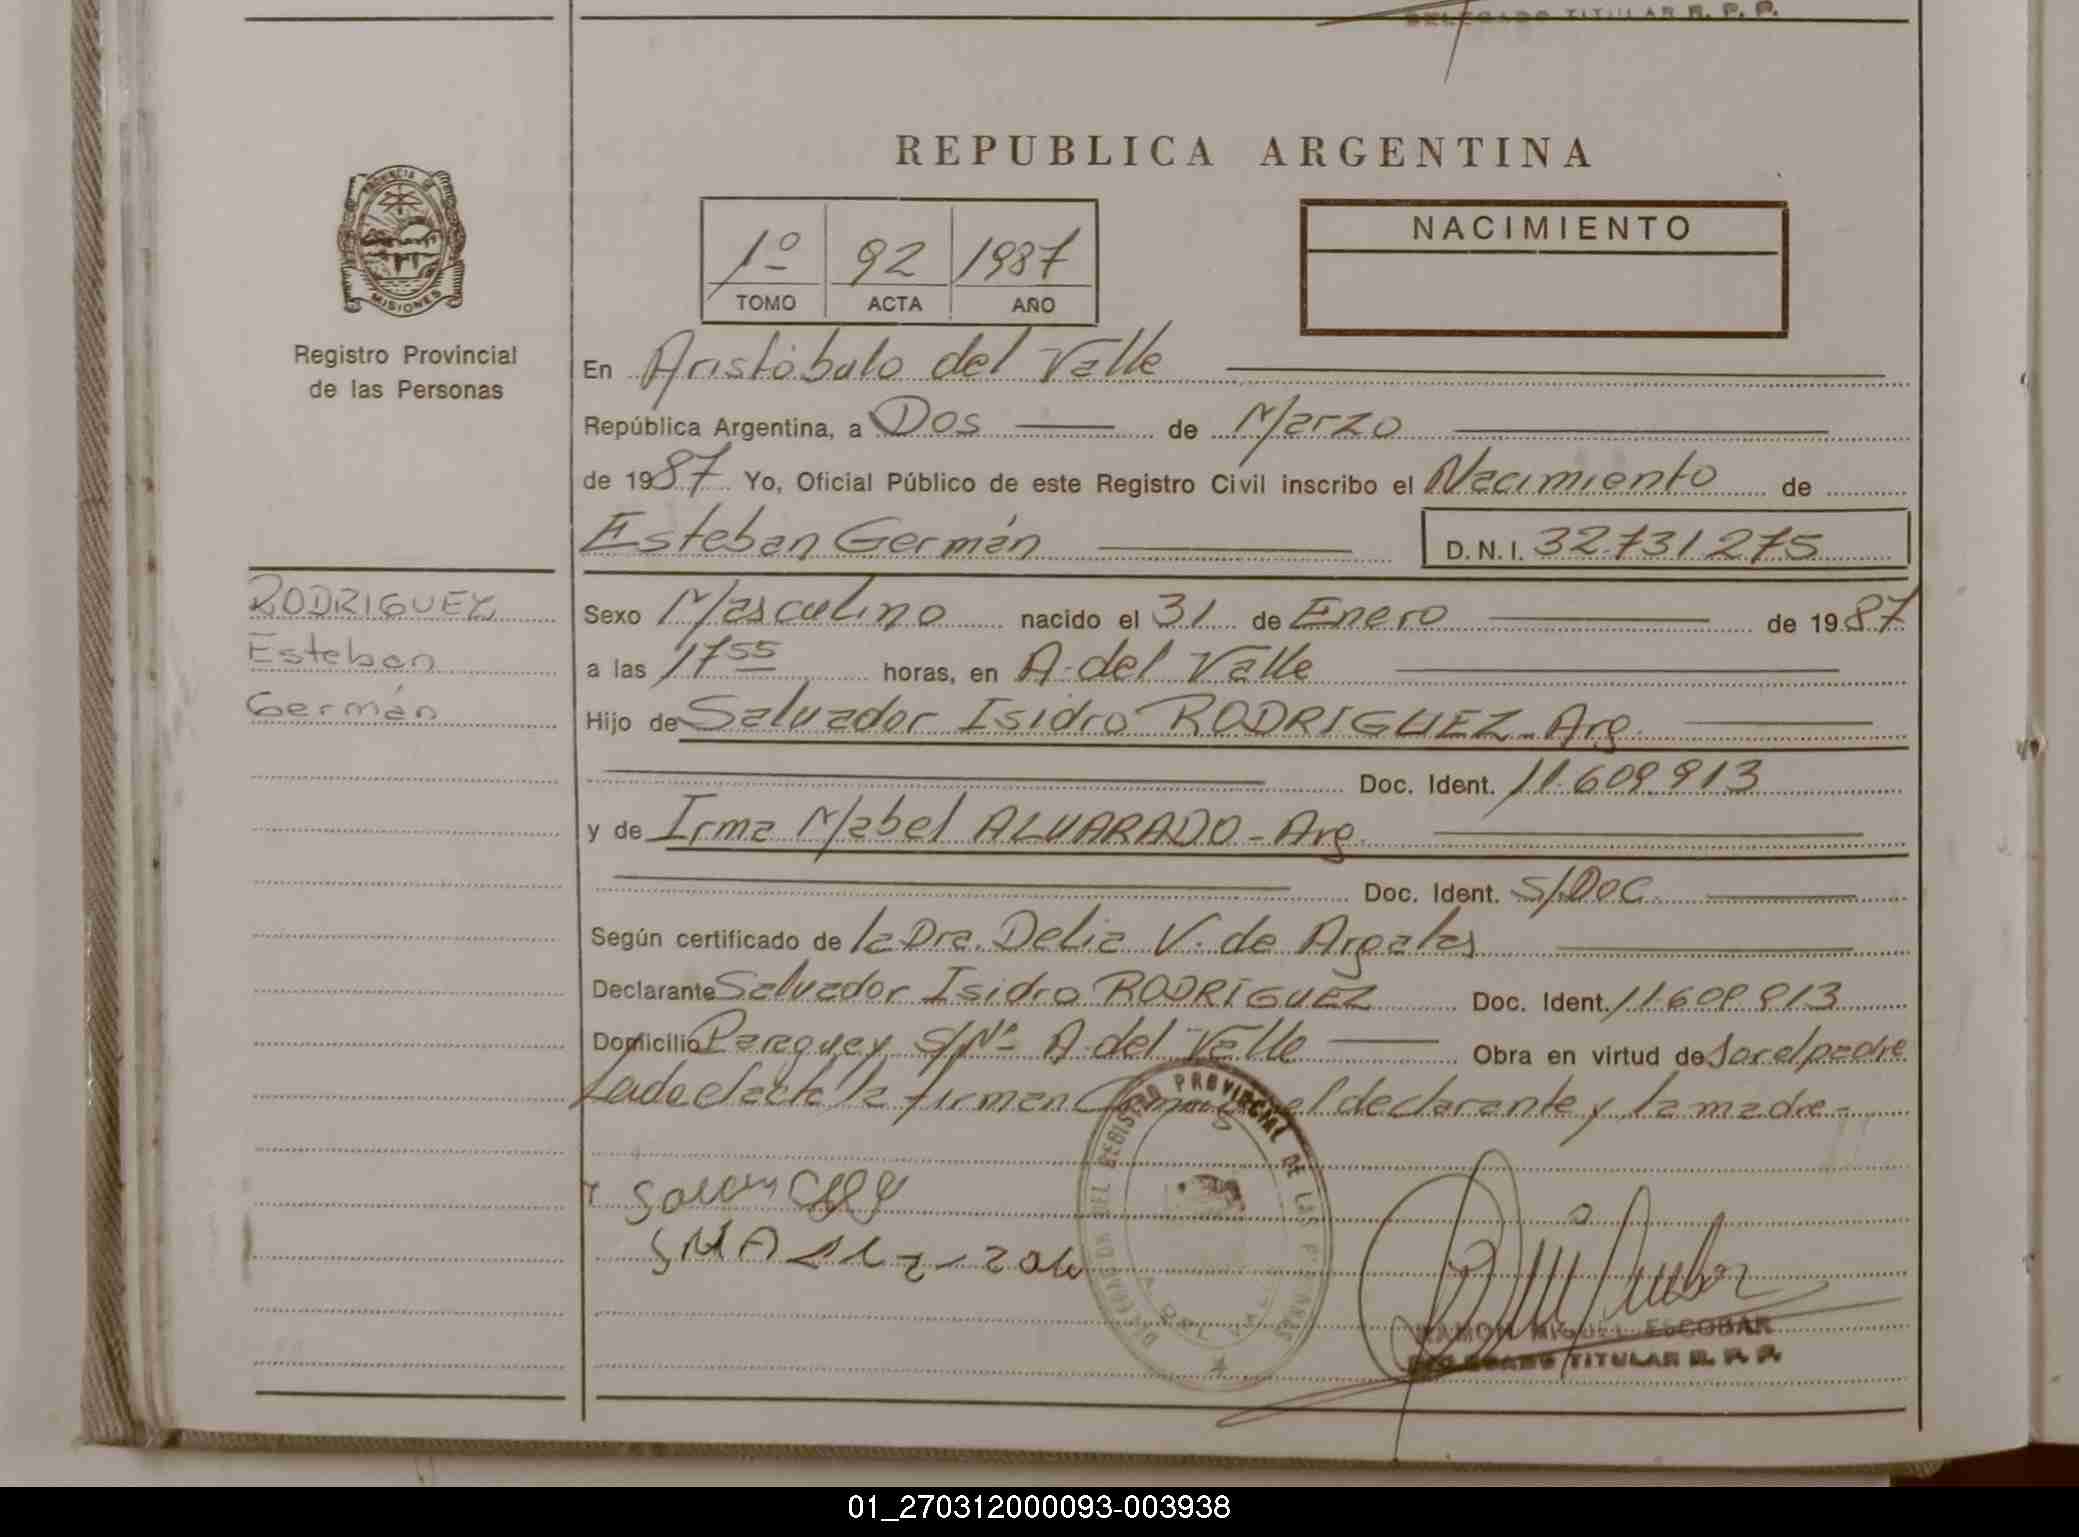 DELEGADO TITULAR R. P. P.
REPUBLICA ARGENTINA
PROVINCIA DE
MISIONES
Registro Provincial
de las Personas
1º 92 1987
TOMO ACTA AÑO
NACIMIENTO
En Aristóbulo del Valle
República Argentina, a Dos de Marzo
de 1987 Yo, Oficial Público de este Registro Civil inscribo el Nacimiento de
Esteban Germán D.N.I. 32731275
RODRIGUEZ
Esteban
Germán
Sexo Masculino nacido el 31 de Enero de 1987
a las 17 55 horas, en A. del Valle
Hijo de Salvador Isidro RODRIGUEZ - Arg.
Doc. Ident. 11.609.913
y de Irma Mabel ALVARADO - Arg.
Doc. Ident. S/Doc
Según certificado de la Dra. Delia V. de
Declarante Salvador Isidro RODRIGUEZ Doc. Ident. 11.609.913
Domicilio Paraguay S/Nº A. del Valle Obra en virtud de Ser el padre
Leida el acta la firman el declarante y la madre -
REGISTRO PROVINCIAL DE LAS
RAMON MIGUEL ESCOBAR
DELEGADO TITULAR R. P. P.
01_270312000093-003938